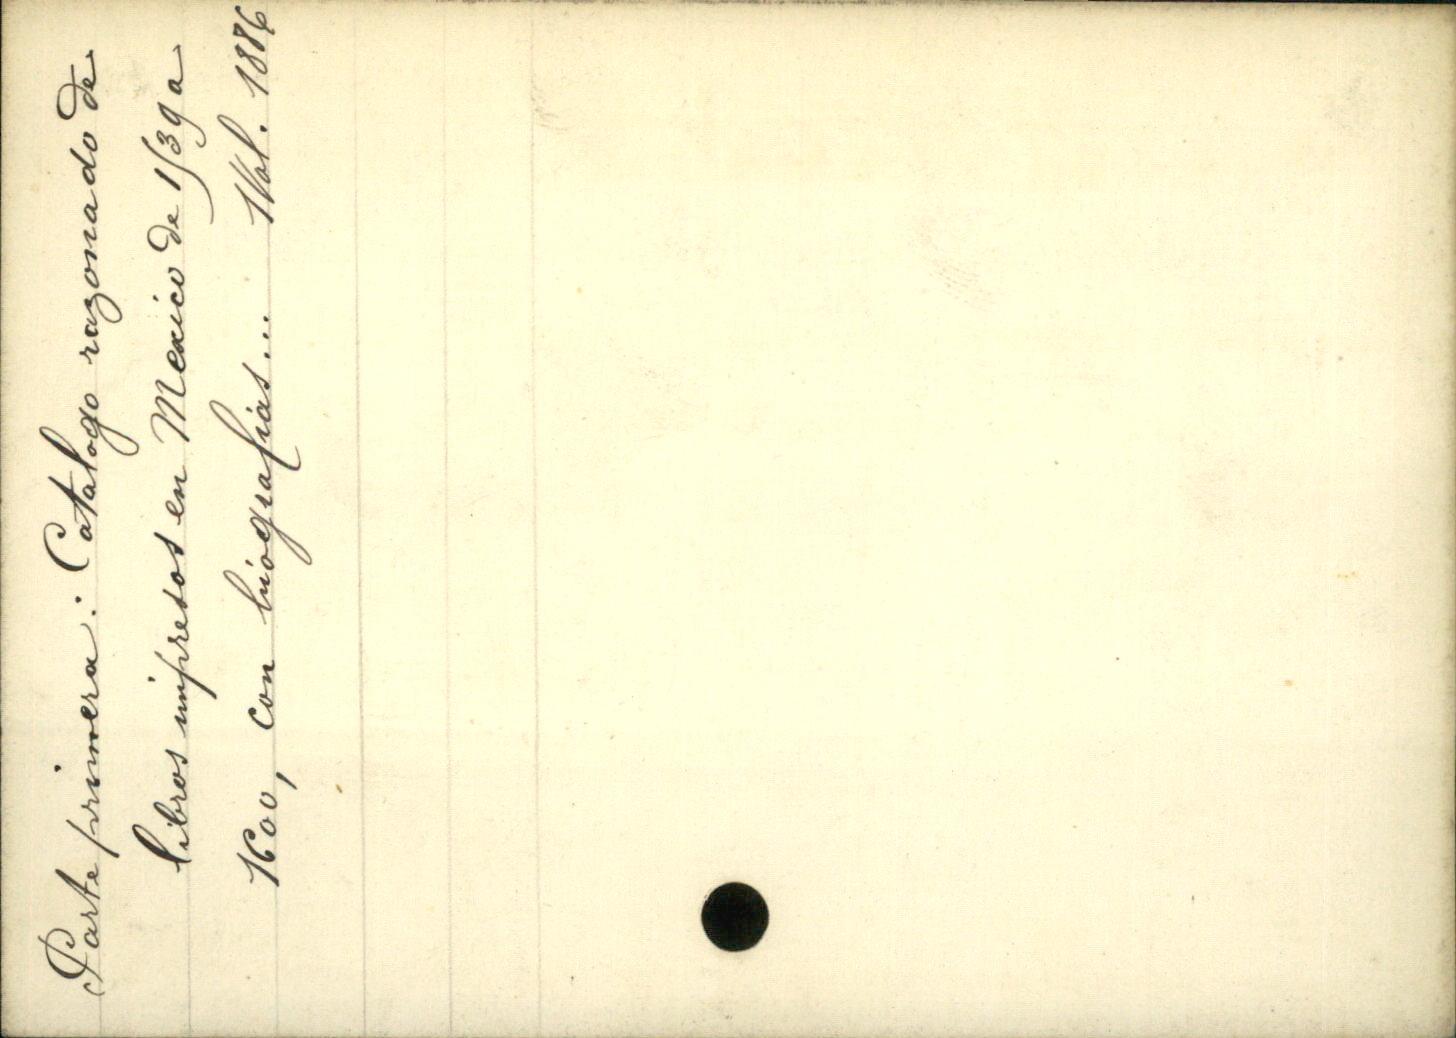 Parte primera: Catalogo razonado de
libros impresos en Mexico de 1539 a
1600, con biografias... 1 Vol. 1886